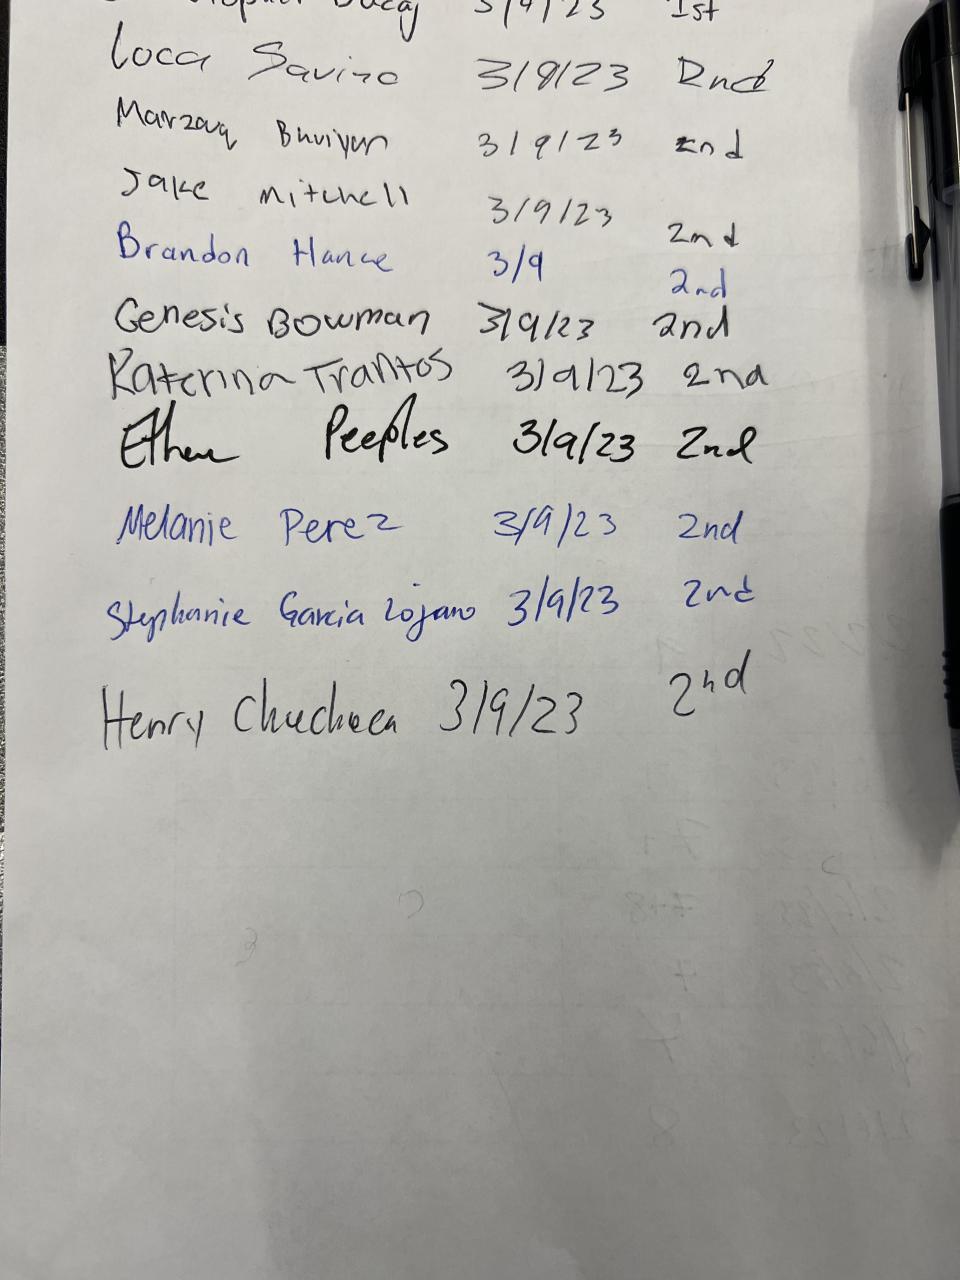 3/9/23 1st
Loca Savino 3/9/23 2nd
Marzouq Bhuiyan 3/9/23 2nd
Jake Mitchell 3/9/23 2nd
Brandon Hance 3/9 2nd
Genesis Bowman 3/9/23 2nd
Katerina Trantos 3/9/23 2nd
Ethan Peeples 3/9/23 2nd
Melanie Perez 3/9/23 2nd
Stephanie Garcia Lojano 3/9/23 2nd
Henry Chuchuca 3/9/23 2nd